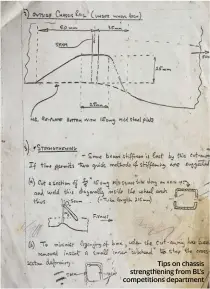 2) OUTSIDE CHASSIS RAIL (UNDER WHEEL ARCH)
60mm
25mm
SEAM
25mm
25mm
NB. RE-PLATE BOTTOM WITH 16swg MILD STEEL PLATE
3) STRENGTHENING
- Some beam stiffness is lost by this cut-away
If time permits two quick methods of stiffening are suggested
(a) Cut a section of
and weld this diagonally inside the wheel arch
thus
50mm
(Tube length 215mm)
FLANGE
(b) To minimise lozenging of beam, when the cut-away has been
removed insert a small inner "bulkhead" to stop the cross
section deforming.
Tips on chassis
strengthening from BL's
competitions department